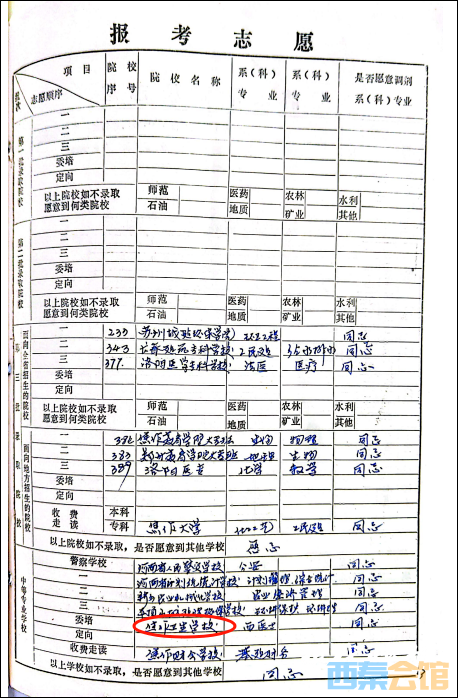 报考志愿
项目 院校序号 院校名称 系(科)专业 系(科)专业 是否愿意调剂系(科)专业
批次 志愿顺序
第一批录取院校
一
二
三
委培
定向
以上院校如不录取愿意到何类院校 师范 医药 农林 水利
石油 地质 矿业 其他
第二批录取院校
一
二
三
委培
定向
以上院校如不录取愿意到何类院校 师范 医药 农林 水利
石油 地质 矿业 其他
第三批录取院校
面向全省招生的院校
一 233 苏州城建环保学院 环卫工程 同志
二 343 长春建筑专科学校 工民建 同志
三 377 洛阳医学专科学校 法医 医疗 同志
委培
定向
以上院校如不录取愿意到何类院校 师范 医药 农林 水利
石油 地质 矿业 其他
面向地方招生的院校
一 382 焦作教育学院大专班 生物 物理 同志
二 383 教育学院大专班 地理 生物 同志
三 389 洛阳医专 化学 数学 同志
委培
定向
收费走读 本科
专科 焦作大学 工民建 同志
以上院校如不录取,是否愿意到其他学校
中等专业学校
警察学校 河南省人民警察学校 公安 同志
一 河南省计划统计学校 同志
二 农业机械化学校 同志
三 学校 环境保护 同志
委培 焦作卫生学校 西医士 同志
定向
收费走读 学校 同志
以上学校如不录取,是否愿意到其他学校 同志
西秦会馆